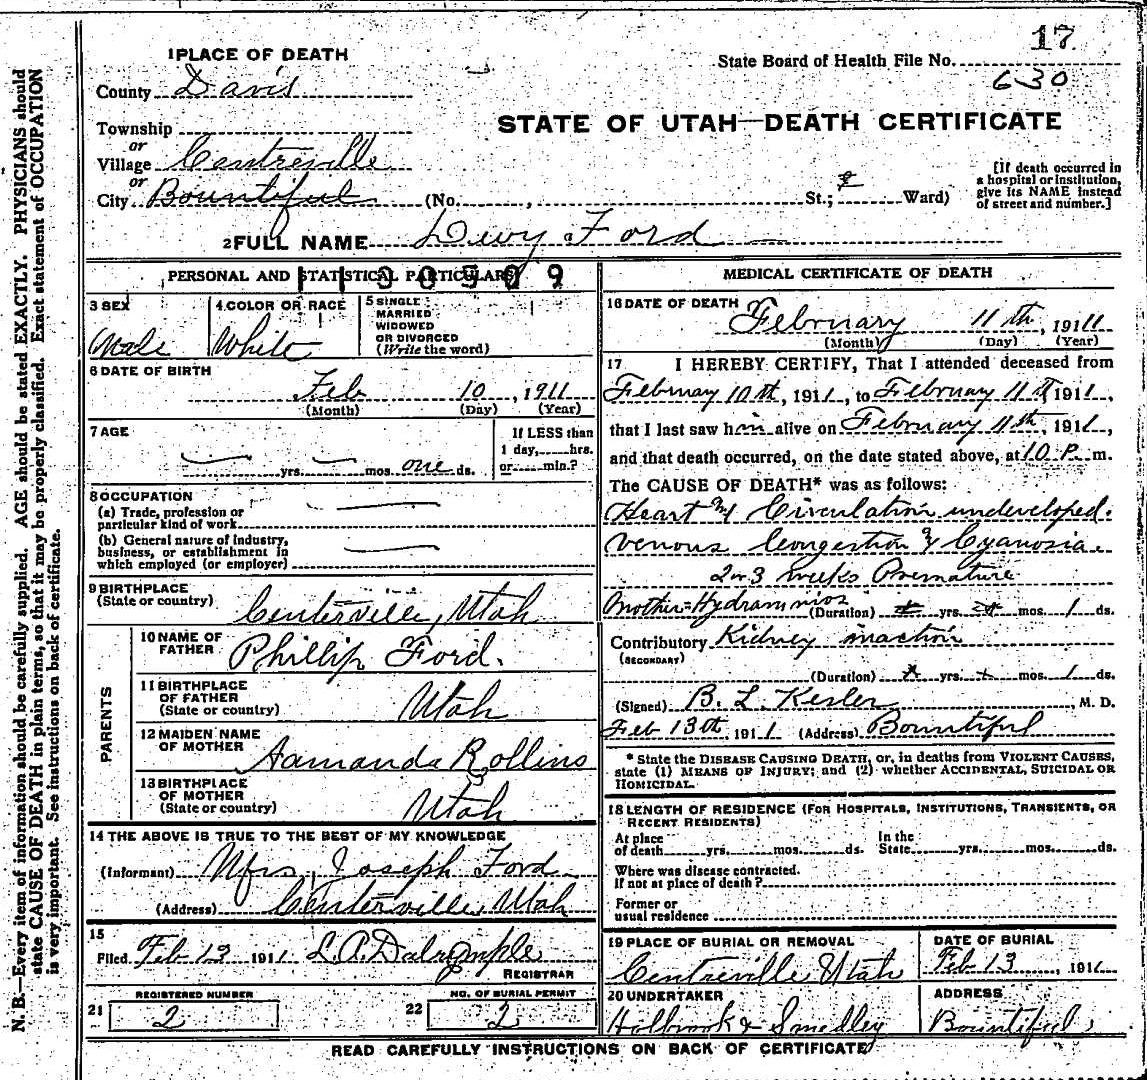 17
State Board of Health File No.
630
1 PLACE OF DEATH
County Davis
STATE OF UTAH—DEATH CERTIFICATE
Township
or
Village Centreville
or
City Bountiful (No. , St.; Ward)
[If death occurred in
a hospital or institution,
give its NAME instead
of street and number.]
2 FULL NAME Dewy Ford
PERSONAL AND STATISTICAL PARTICULARS
3 SEX
Male
4 COLOR OR RACE
White
5 SINGLE
MARRIED
WIDOWED
OR DIVORCED
(Write the word)
6 DATE OF BIRTH
Feb 10, 1911
(Month) (Day) (Year)
7 AGE
yrs. mos. one ds.
If LESS than
1 day, hrs.
or min.?
8 OCCUPATION
(a) Trade, profession or
particular kind of work
(b) General nature of industry,
business, or establishment in
which employed (or employer)
9 BIRTHPLACE
(State or country)
Centerville, Utah
PARENTS
10 NAME OF
FATHER Phillip Ford.
11 BIRTHPLACE
OF FATHER
(State or country) Utah
12 MAIDEN NAME
OF MOTHER Aamanda Rollins
13 BIRTHPLACE
OF MOTHER
(State or country) Utah
14 THE ABOVE IS TRUE TO THE BEST OF MY KNOWLEDGE
(Informant) Mrs. Joseph Ford
(Address) Centerville, Utah
15
Filed Feb 13 1911. L. P. Dalrymple
REGISTRAR
REGISTERED NUMBER
21 2
NO. OF BURIAL PERMIT
22 2
MEDICAL CERTIFICATE OF DEATH
16 DATE OF DEATH
February 11th, 1911
(Month) (Day) (Year)
17 I HEREBY CERTIFY, That I attended deceased from
February 10th, 1911, to February 11th 1911,
that I last saw him alive on February 11th, 1911,
and that death occurred, on the date stated above, at 10 P. m.
The CAUSE OF DEATH* was as follows:
Heart and Circulation undeveloped.
Venous Congestion & Cyanosia.
2 or 3 weeks Premature
Mother=Hydramnios (Duration) yrs. mos. 1 ds.
Contributory Kidney inaction
(SECONDARY)
(Duration) yrs. mos. 1 ds.
(Signed) B. L. Kesler, M. D.
Feb 13th, 1911 (Address) Bountiful
* State the DISEASE CAUSING DEATH, or, in deaths from VIOLENT CAUSES,
state (1) MEANS OF INJURY; and (2) whether ACCIDENTAL, SUICIDAL OR
HOMICIDAL.
18 LENGTH OF RESIDENCE (FOR HOSPITALS, INSTITUTIONS, TRANSIENTS, OR
RECENT RESIDENTS)
At place In the
of death yrs. mos. ds. State yrs. mos. ds.
Where was disease contracted.
If not at place of death?
Former or
usual residence
19 PLACE OF BURIAL OR REMOVAL
Centreville Utah
DATE OF BURIAL
Feb 13, 1911
20 UNDERTAKER
Holbrook & Smedley
ADDRESS
Bountiful
READ CAREFULLY INSTRUCTIONS ON BACK OF CERTIFICATE
N. B.—Every item of information should be carefully supplied. AGE should be stated EXACTLY. PHYSICIANS should
state CAUSE OF DEATH in plain terms, so that it may be properly classified. Exact statement of OCCUPATION
is very important. See instructions on back of certificate.